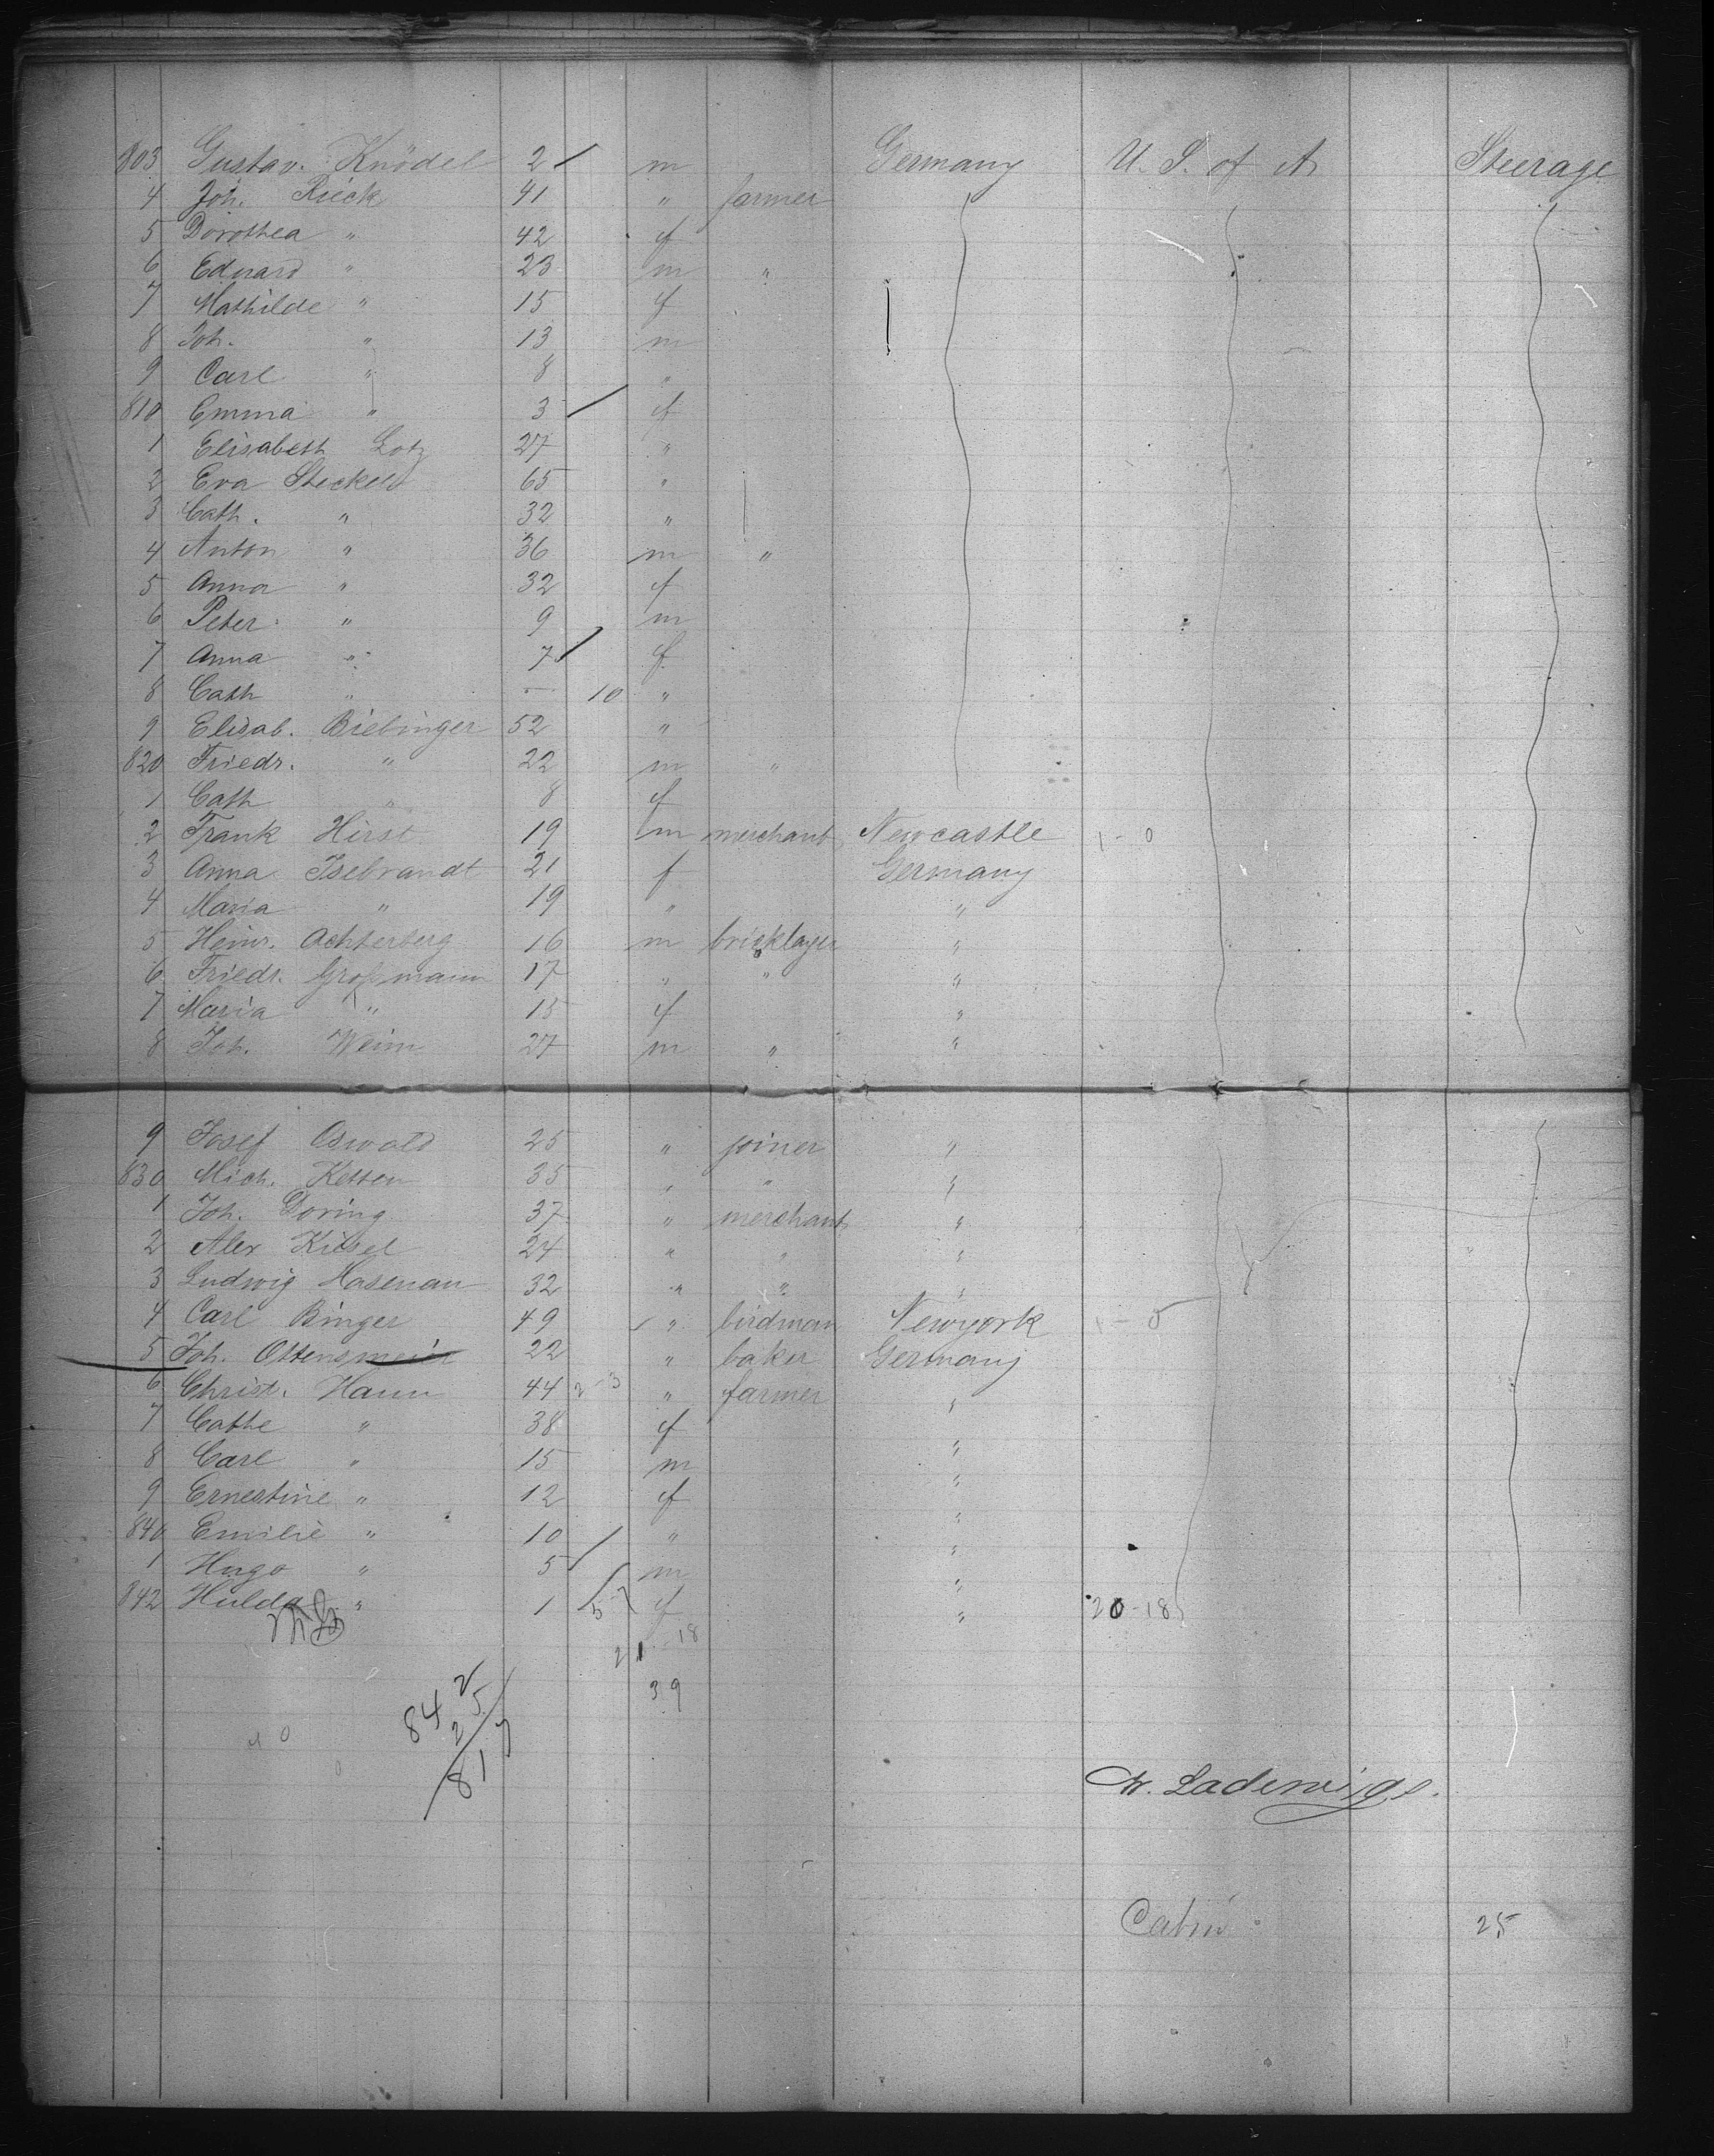 803 Gustav. Knödel 2 m Germany U. S. of A Steerage
4 Joh. Rieck 41 " farmer
5 Dorothea " 42 f
6 Eduard " 23 m "
7 Mathilde " 15 f
8 Joh. " 13 m
9 Carl " 8 "
810 Emma " 3 f
1 Elisabeth Lotz 27 "
2 Eva Steckel 65 "
3 Cath. " 32 "
4 Anton " 36 m "
5 Anna " 32 f
6 Peter " 9 m
7 Anna " 7 f
8 Cath " — 10 "
9 Elisab. Biebinger 52 "
820 Friedr. " 22 m "
1 Cath " 8 f
2 Frank Hirst 19 m merchant Newcastle 1 - 0
3 Anna Isebrandt 21 f Germany
4 Maria " 19 " "
5 Heinr. Achterberg 16 m bricklayer "
6 Friedr. Großmann 17 " " "
7 Maria " 15 f "
8 Joh. Weim 27 m " "
9 Josef Oswald 25 " joiner "
830 Mich. Ketten 35 " " "
1 Joh. Doring 37 " merchant "
2 Alex Kiesel 24 " " "
3 Ludwig Hasenau 32 " " "
4 Carl Binger 49 " birdman Newyork 1 - 0
5 Joh. Ottensmeier 22 " baker Germany
6 Christ. Hann 44 2-3 " farmer "
7 Cathe " 38 f "
8 Carl " 15 m "
9 Ernestine " 12 f "
840 Emilie " 10 " "
1 Hugo " 5 m "
842 Hulda " 1 5 f " 20-18
21-18
39
842
25
817
W. Ladewigs.
Cabin 25